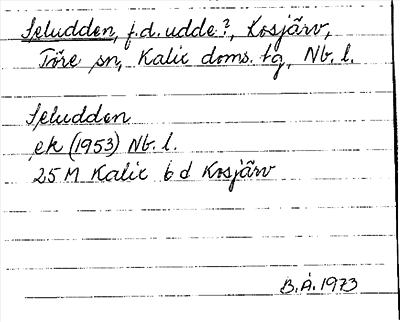 Seludden, f.d. udde?, Kosjärv,
Töre sn, Kalix doms. tg, Nb. l.
Seludden
ek (1953) Nb. l.
25 M Kalix 6 d Kosjärv
B.Å. 1973